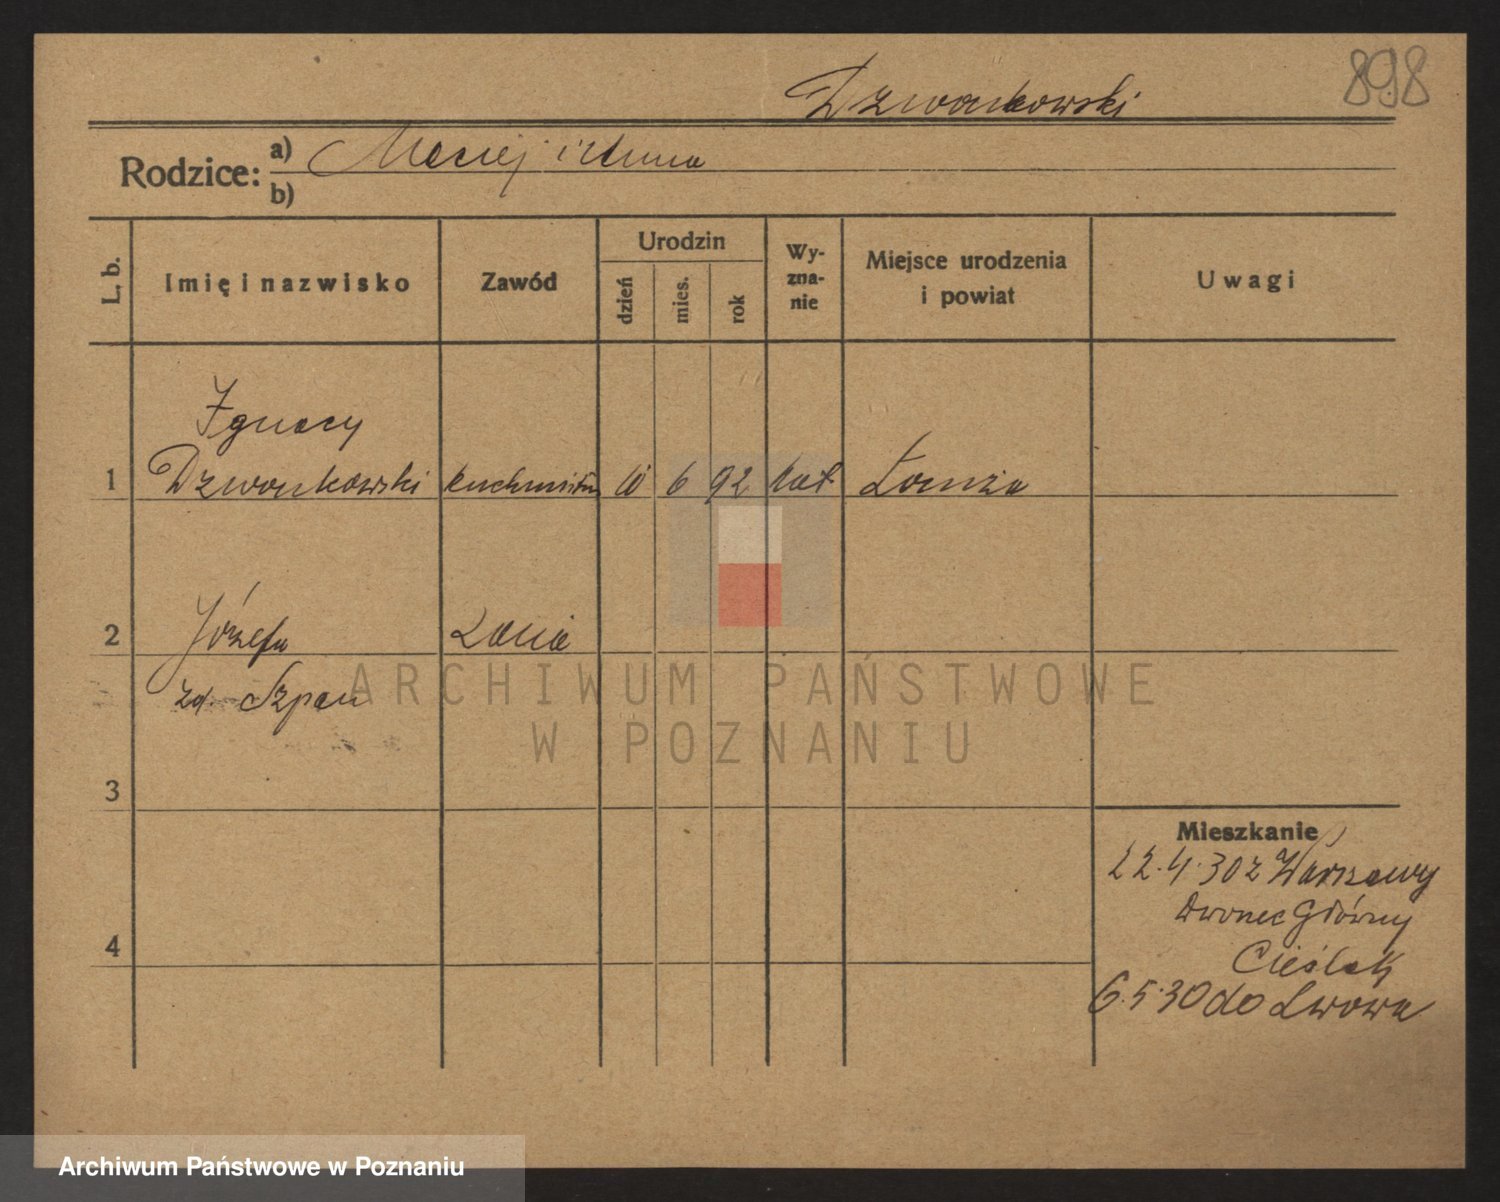 Dzwonkowski
898
Rodzice: a) Maciej i Anna
b)
L. b.
Imię i nazwisko
Zawód
Urodzin
dzień
mies.
rok
Wy-
zna-
nie
Miejsce urodzenia
i powiat
Uwagi
Ignacy
1 Dzwonkowski kuchmistrz 10 6 92 kat Łomża
2 Józefa żona
zd. Szpan
ARCHIWUM PAŃSTWOWE
W POZNANIU
3
Mieszkanie
22.4.30 z Warszawy
Dworzec Główny
Cieślak
4
6.5.30 do Lwowa
Archiwum Państwowe w Poznaniu